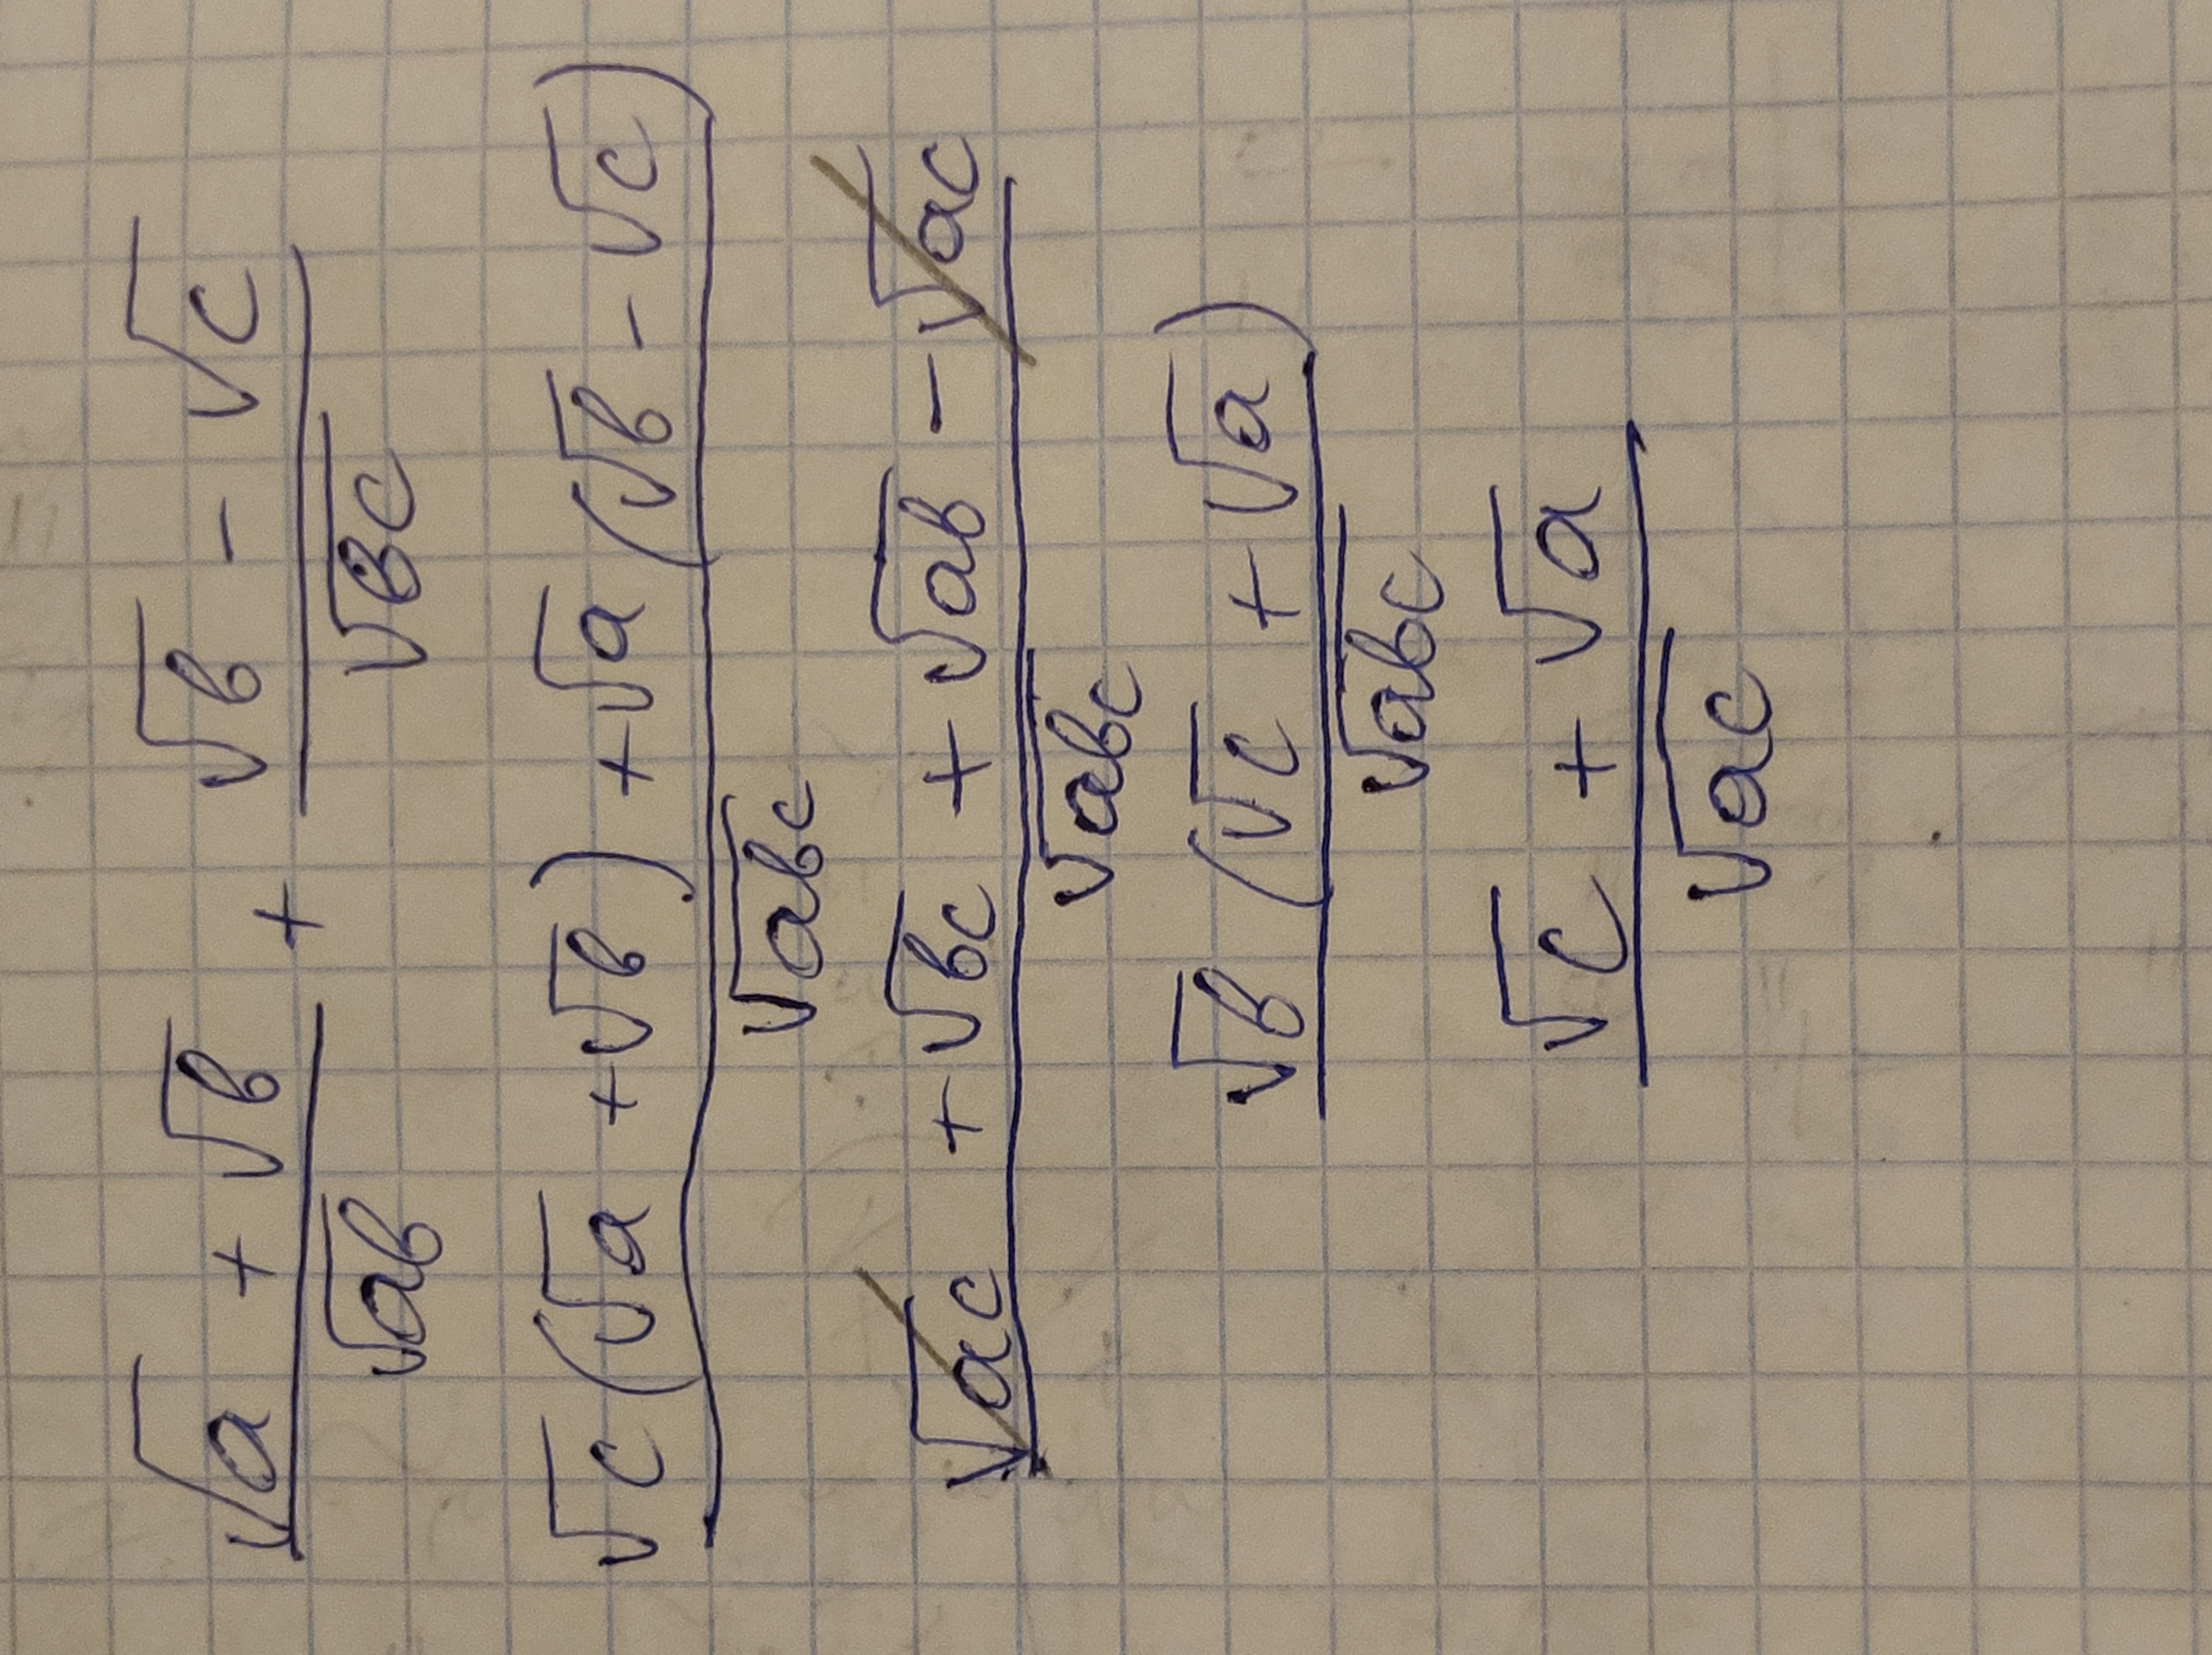 √a + √b / √ab + √b - √c / √bc
√c(√a + √b) + √a(√b - √c) / √abc
√ac + √bc + √ab - √ac / √abc
√b(√c + √a) / √abc
√c + √a / √ac